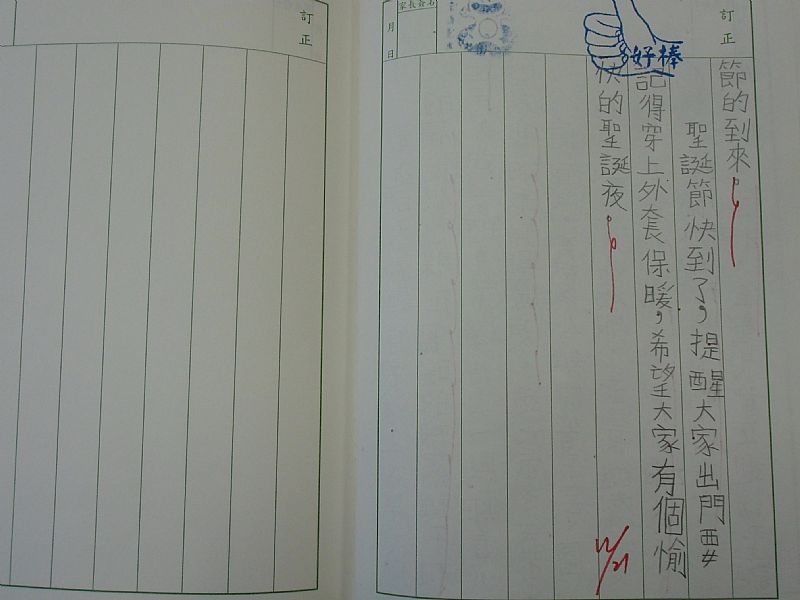 訂正
節的到來。
聖誕節快到了，提醒大家出門要
記得穿上外套保暖，希望大家有個愉
快的聖誕夜。
好棒
12/21
家長簽名
月日
訂正